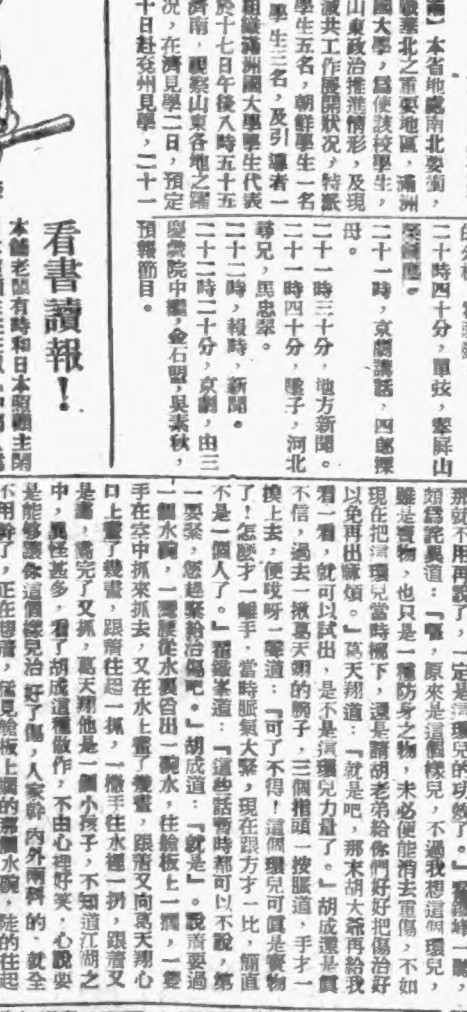 本省地處南北要衝，
華北之重要地區，滿洲
國大學，為使該校學生，
山東政治推進情形，及現
滅共工作展開狀況，特派
學生五名，朝鮮學生一名
學生三名，及引導者一
組織滿洲國大學學生代表
於十七日午後八時五十五
濟南，視察山東各地之躍
況，在濟見學二日，預定
十日赴兗州見學，二十一
二十時四十分，單弦，翠屏山
二十一時，京劇講話，四郎探
母。
二十一時三十分，地方新聞。
二十一時四十分，墜子，河北
尋兄，馬忠翠。
二十二時，報時，新聞。
二十二時二十分，京劇，由三
慶戲院中繼，金石盟，吳素秋，
預報節目。
看書讀報！
本舖老闆有時和日本照顧主閑
那就不用再說了，一定是這環兒的功效了。」
頗為詫異道：「喂，原來是這個樣兒，不過我想這個環兒，
雖是寶物，也只是一種防身之物，未必便能消去重傷，不如
現在把這環兒當時擲下，還是請胡老弟給你們好好把傷治好
以免再出麻煩。」葛天翔道：「就是吧，那末胡大爺再給我
看一看，就可以試出，是不是這環兒力量了。」胡成還是真
不信，過去一揪葛天翔的腕子，三個指頭一按脈道，手才一
換上去，便哎呀一聲道：「可了不得！這個環兒可真是寶物
了！怎麼才一離手，當時脈氣大緊，現在跟方才一比，簡直
不是一個人了。」翟鐵峯道：「這些話暫時都可以不說，第
一要緊，您趕緊給治傷吧。」胡成道：「就是」。說着要過
一個水碗，一彎腰從水裏舀出一碗水，往艙板上一擱，一隻
手在空中抓來抓去，又在水上畫了幾畫，跟着又向葛天翔心
口上畫了幾畫，跟着往起一抓，一撒手往水裡一扔，跟着又
是畫，畫完了又抓，葛天翔他是一個小孩子，不知道江湖之
中，異怪甚多，看了胡成這種做作，不由心裡好笑，心說要
是能夠讓你這個樣兒治好了傷，人家幹內外兩科的，就全
不用幹了，正在想着，猛見艙板上擱的那個水碗，陡的往起